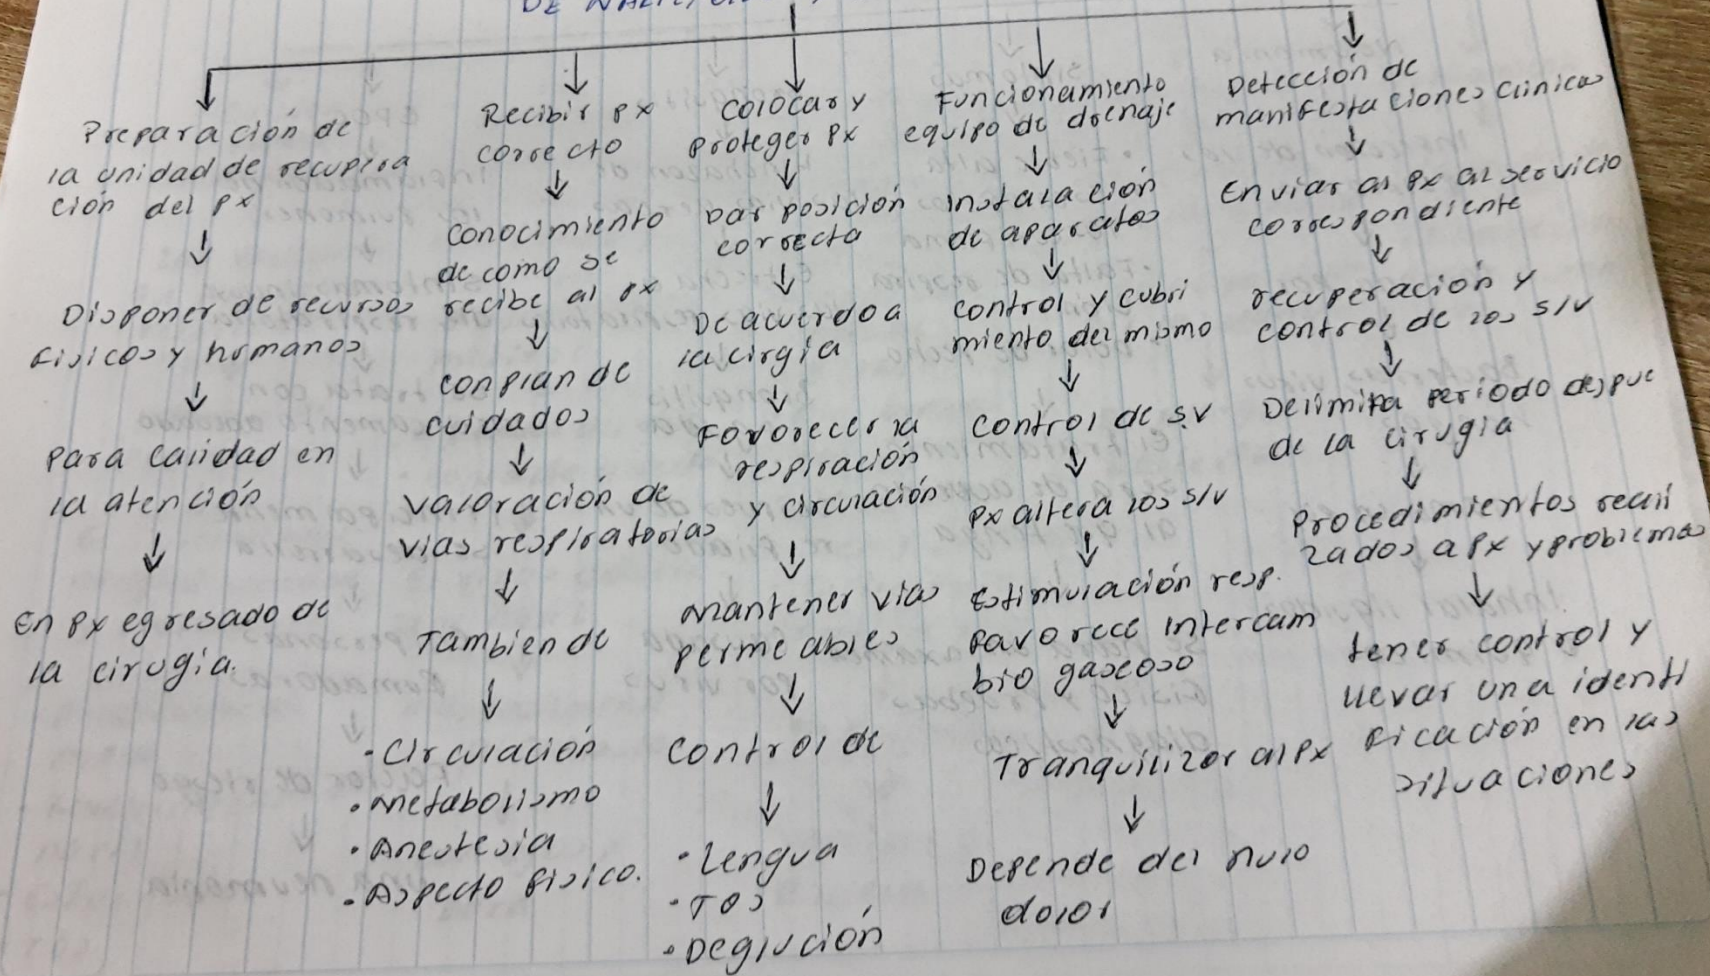 DE
Preparación de
la unidad de recupera
ción del px
Disponer de recursos
fisicos y humanos
Para calidad en
la atención
En px egresado de
la cirugia.
Recibir px
correcto
conocimiento
de como se
recibe al px
con plan de
cuidados
valoración de
vias respiratorias
Tambien de
· Circulación
· Metabolismo
· Anestesia
· Aspecto fisico.
Colocar y
proteger px
Dar posición
correcta
De acuerdo a
la cirgía
Favorecer la
respiración
y circulación
Mantener vias
permeables
control de
· Lengua
· Tos
· Deglución
Funcionamiento
equipo de drenaje
Instalación
de aparatos
control y cubri
miento del mismo
control de s.v
px altera los s/v
Estimulación resp.
favorece intercam
bio gaseoso
Tranquilizar al px
Depende del nulo
dolor
Detección de
manifestaciones clinicas
Enviar al px al servicio
correspondiente
recuperación y
control de los s/v
Delimita periodo despue
de la cirugia
Procedimientos reali
zados a px y problemas
tener control y
llevar una identi
ficación en las
situaciones